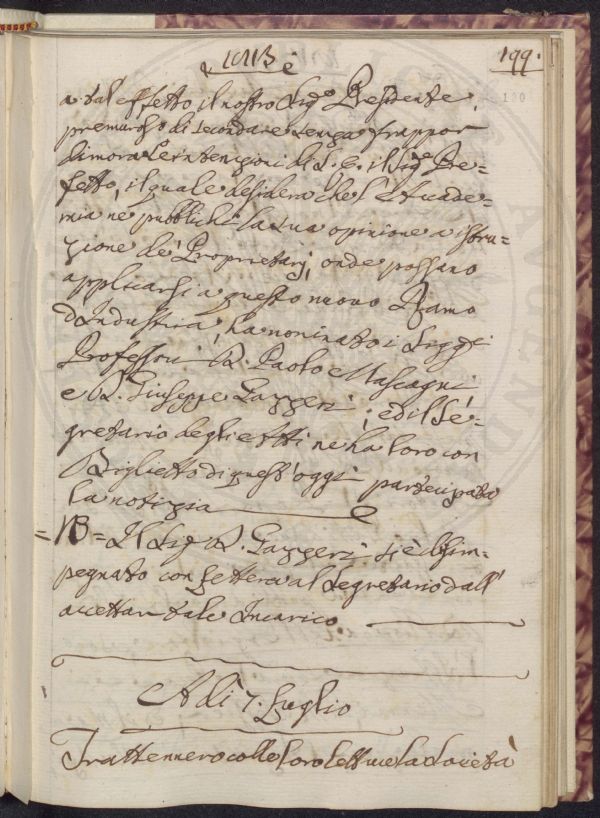 1813
199.
a tal effetto il nostro Sig.e Presidente,
premuroso di secondare senza frappor
dimora le intenzioni di S. E. il Sig.e Pre=
fetto, il quale desidera che l'Accade=
mia ne pubblichi la sua opinione a istru=
zione de' Proprietarj, onde possano
applicarsi a questo nuovo Ramo
d'Industria, ha nominato i Sigg.i
Professori D. Paolo Mascagni
e D. Giuseppe Gazzeri; ed il Se=
gretario degli Atti ne ha loro con
Biglietto di quest'oggi partecipato
la notizia
= NB = Il Sig. D. Gazzeri si è disim=
pegnato con Lettera al Segretario dall'
accettar tale Incarico
A dì 7. Luglio
Trattennero colle loro Letture la Società